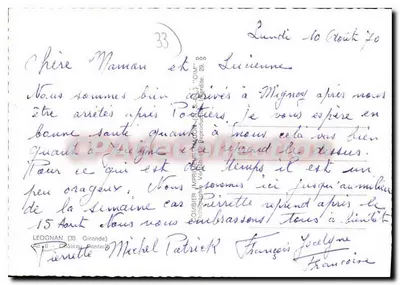 33
Lundi 10 Août 70
Chère Maman et Lucienne
Nous sommes bien arrivés à Mignoy après nous
être arrêtés après Poitiers. Je vous espère en
bonne santé quant à nous cela va bien
quant à
Pour ce qui est de temps il est un
peu orageux. Nous sommes ici jusqu'au milieu
de la semaine car Pierrette reprend après le
15 Août. Nous vous embrassons tous à bientôt
LEOGNAN (33) Gironde
Pierrette Michel Patrick François Jocelyne
Francoise